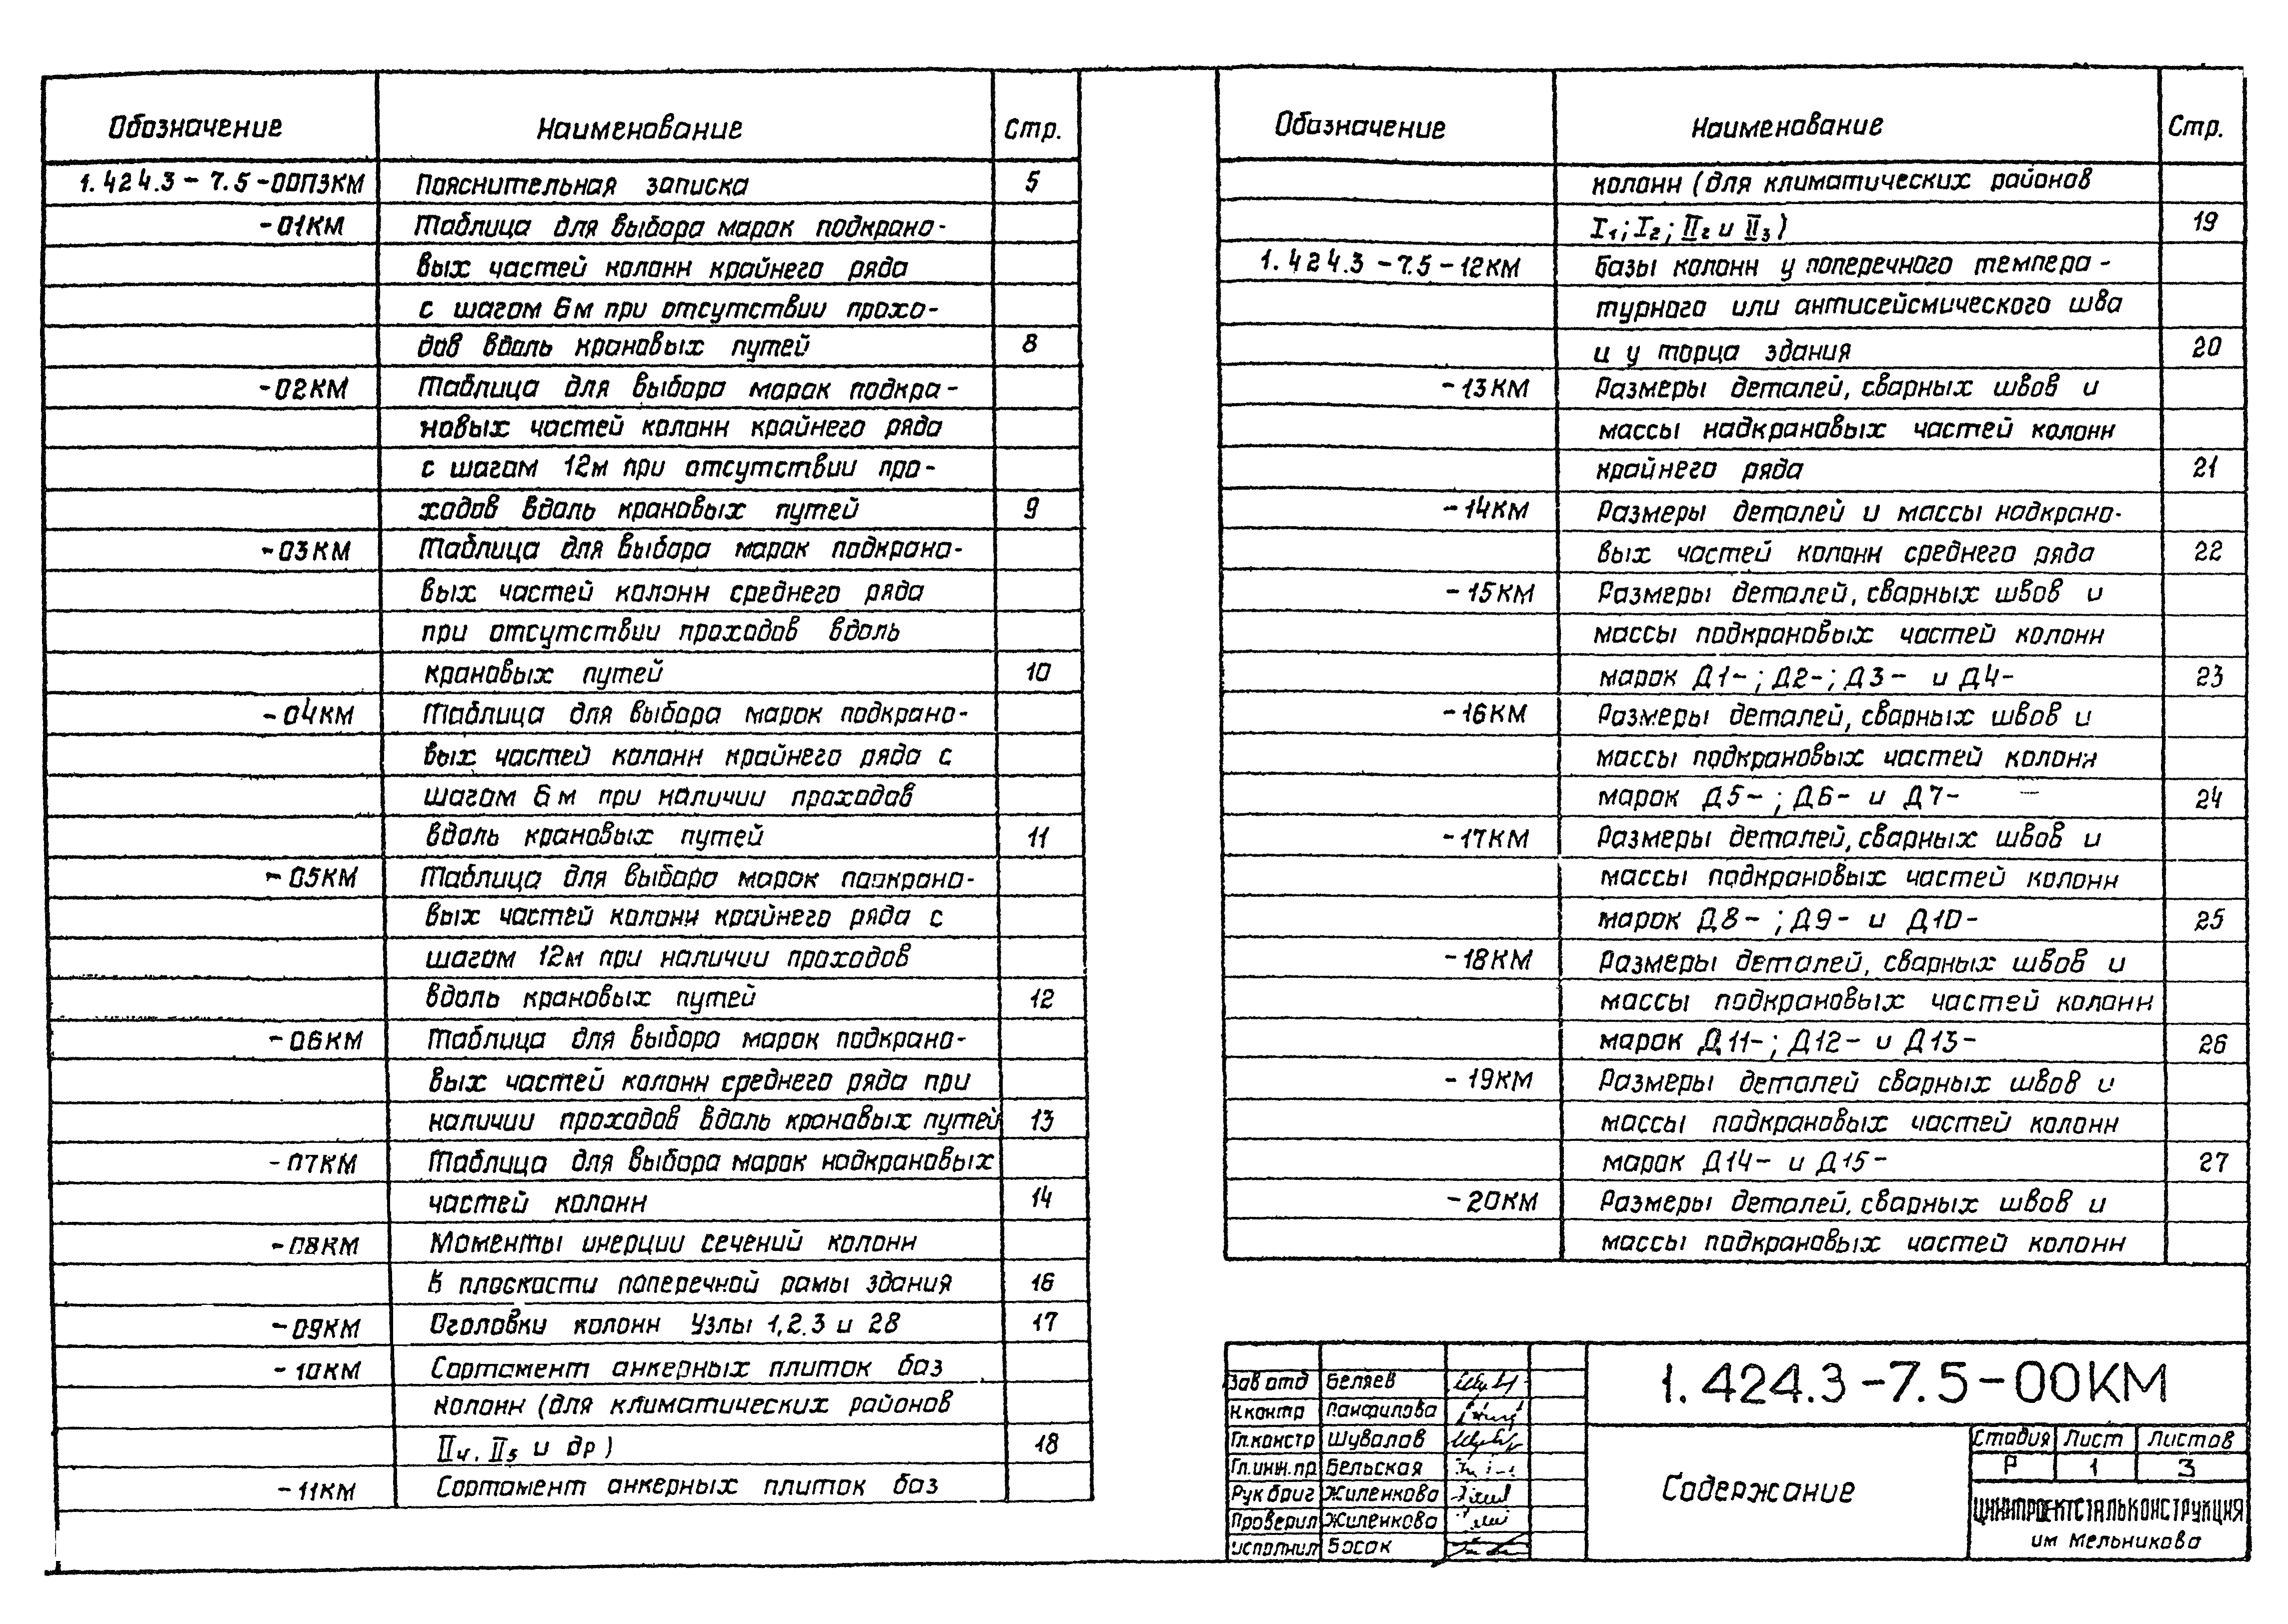 Обозначение Наименование Стр.
1.424.3-7.5-00ПЗКМ Пояснительная записка 5
-01КМ Таблица для выбора марок подкрано-
вых частей колонн крайнего ряда
с шагом 6м при отсутствии прохо-
дов вдоль крановых путей 8
-02КМ Таблица для выбора марок подкра-
новых частей колонн крайнего ряда
с шагом 12м при отсутствии про-
ходов вдоль крановых путей 9
-03КМ Таблица для выбора марок подкрано-
вых частей колонн среднего ряда
при отсутствии проходов вдоль
крановых путей 10
-04КМ Таблица для выбора марок подкрано-
вых частей колонн крайнего ряда с
шагом 6м при наличии проходов
вдоль крановых путей 11
-05КМ Таблица для выбора марок подкрано-
вых частей колонн крайнего ряда с
шагом 12м при наличии проходов
вдоль крановых путей 12
-06КМ Таблица для выбора марок подкрано-
вых частей колонн среднего ряда при
наличии проходов вдоль крановых путей 13
-07КМ Таблица для выбора марок надкрановых
частей колонн 14
-08КМ Моменты инерции сечений колонн
в плоскости поперечной рамы здания 16
-09КМ Оголовки колонн Узлы 1,2.3 и 28 17
-10КМ Сортамент анкерных плиток баз
колонн (для климатических районов
II₄. II₅ и др) 18
-11КМ Сортамент анкерных плиток баз
Обозначение Наименование Стр.
колонн (для климатических районов
I₁; I₂; II₂ и II₃) 19
1.424.3-7.5-12КМ Базы колонн у поперечного темпера-
турного или антисейсмического шва
и у торца здания 20
-13КМ Размеры деталей, сварных швов и
массы надкрановых частей колонн
крайнего ряда 21
-14КМ Размеры деталей и массы надкрано-
вых частей колонн среднего ряда 22
-15КМ Размеры деталей, сварных швов и
массы подкрановых частей колонн
марок Д1-; Д2-; Д3- и Д4- 23
-16КМ Размеры деталей, сварных швов и
массы подкрановых частей колонн
марок Д5-; Д6- и Д7- 24
-17КМ Размеры деталей, сварных швов и
массы подкрановых частей колонн
марок Д8-; Д9- и Д10- 25
-18КМ Размеры деталей, сварных швов и
массы подкрановых частей колонн
марок Д11-; Д12- и Д13- 26
-19КМ Размеры деталей сварных швов и
массы подкрановых частей колонн
марок Д14- и Д15- 27
-20КМ Размеры деталей, сварных швов и
массы подкрановых частей колонн
Зав отд Беляев
Н.контр Панфилова
Гл.констр Шувалов
Гл.инж.пр Бельская
Рук бриг Жиленкова
Проверил Жиленкова
исполнил Босак
1.424.3-7.5-00КМ
Содержание
Стадия Лист Листов
Р 1 3
ЦНИИПРОЕКТСТАЛЬКОНСТРУКЦИЯ
им Мельникова